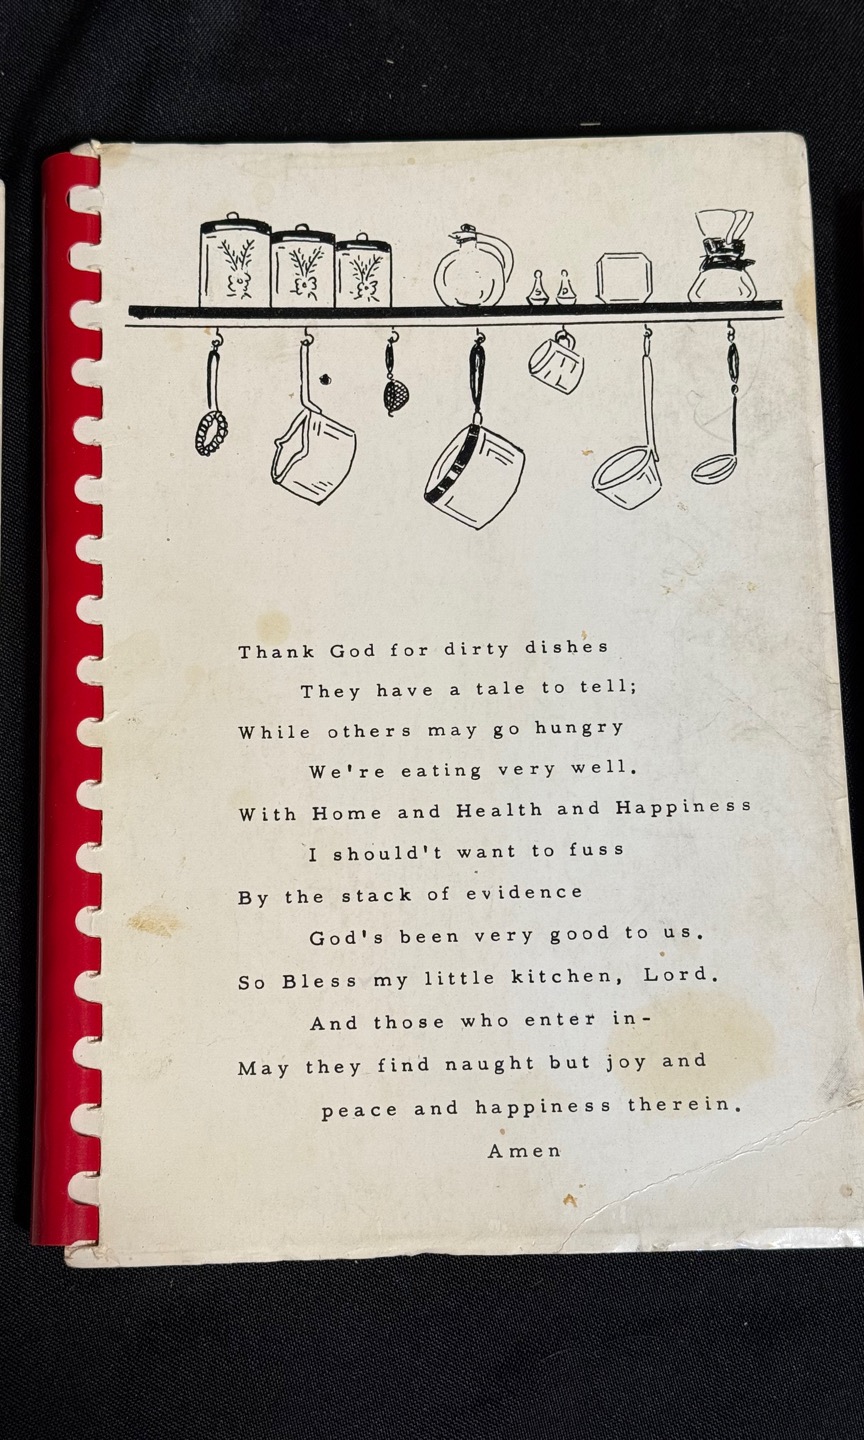 Thank God for dirty dishes
They have a tale to tell;
While others may go hungry
We're eating very well.
With Home and Health and Happiness
I should't want to fuss
By the stack of evidence
God's been very good to us.
So Bless my little kitchen, Lord.
And those who enter in-
May they find naught but joy and
peace and happiness therein.
Amen